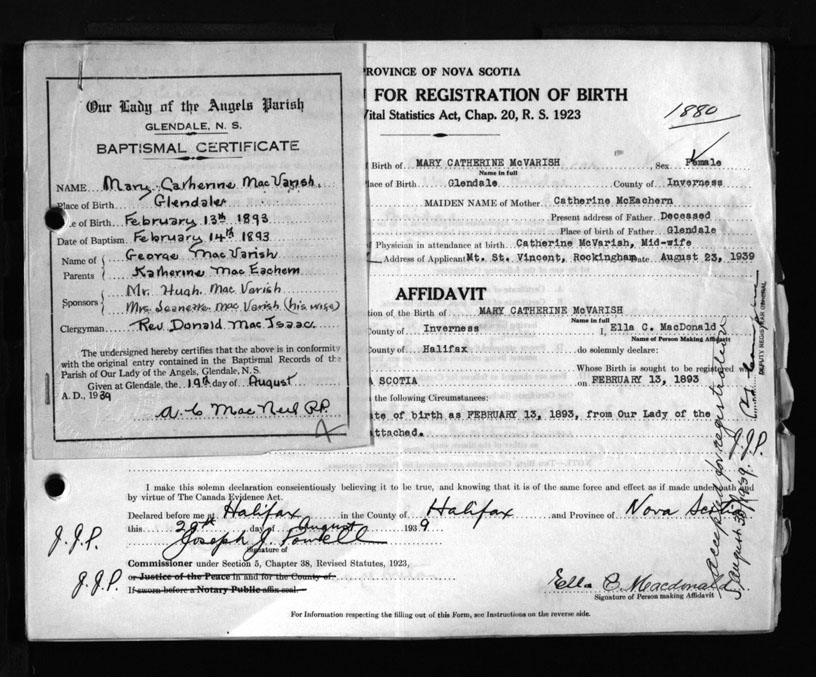 Our Lady of the Angels Parish
GLENDALE, N. S.
BAPTISMAL CERTIFICATE
NAME Mary Catherine MacVarish
Place of Birth Glendale
e of Birth February 13th 1893
Date of Baptism February 14th 1893
Name of Parents George MacVarish
Katherine MacEachern
Sponsors Mr. Hugh MacVarish
Mrs. Jeanette MacVarish (his wife)
Clergyman Rev. Donald MacIsaac
The undersigned hereby certifies that the above is in conformity
with the original entry contained in the Baptismal Records of the
Parish of Our Lady of the Angels, Glendale, N.S.
Given at Glendale, the 19th day of August
A. D., 1939
A. C MacNeil P.P.
PROVINCE OF NOVA SCOTIA
FOR REGISTRATION OF BIRTH
Vital Statistics Act, Chap. 20, R. S. 1923
1880
Birth of MARY CATHERINE McVARISH Sex Female
Name in full
lace of Birth Glendale County of Inverness
MAIDEN NAME of Mother Catherine McEachern
Present address of Father Deceased
Place of birth of Father Glendale
Physician in attendance at birth Catherine McVarish, Mid-wife
Address of Applicant Mt. St. Vincent, Rockingham Date August 23, 1939
AFFIDAVIT
tion of the Birth of MARY CATHERINE McVARISH
Name in full
County of Inverness I, Ella C. MacDonald
Name of Person Making Affidavit
County of Halifax do solemnly declare:
Whose Birth is sought to be registered was
A SCOTIA on FEBRUARY 13, 1893
the following Circumstances:
ate of birth as FEBRUARY 13, 1893, from Our Lady of the
attached.
I make this solemn declaration conscientiously believing it to be true, and knowing that it is of the same force and effect as if made under oath and
by virtue of The Canada Evidence Act.
Declared before me at Halifax in the County of Halifax and Province of Nova Scotia
this 29th day of August 1939
Joseph J. Powell
Signature of
J.J.P. Commissioner under Section 5, Chapter 38, Revised Statutes, 1923,
or Justice of the Peace in and for the County of
J.J.P. If sworn before a Notary Public affix seal
Ella C. Macdonald
Signature of Person making Affidavit
For Information respecting the filling out of this Form, see Instructions on the reverse side.
Accepted for registration
August 30/1939.
DEPUTY REGISTRAR GENERAL
J.J.P.